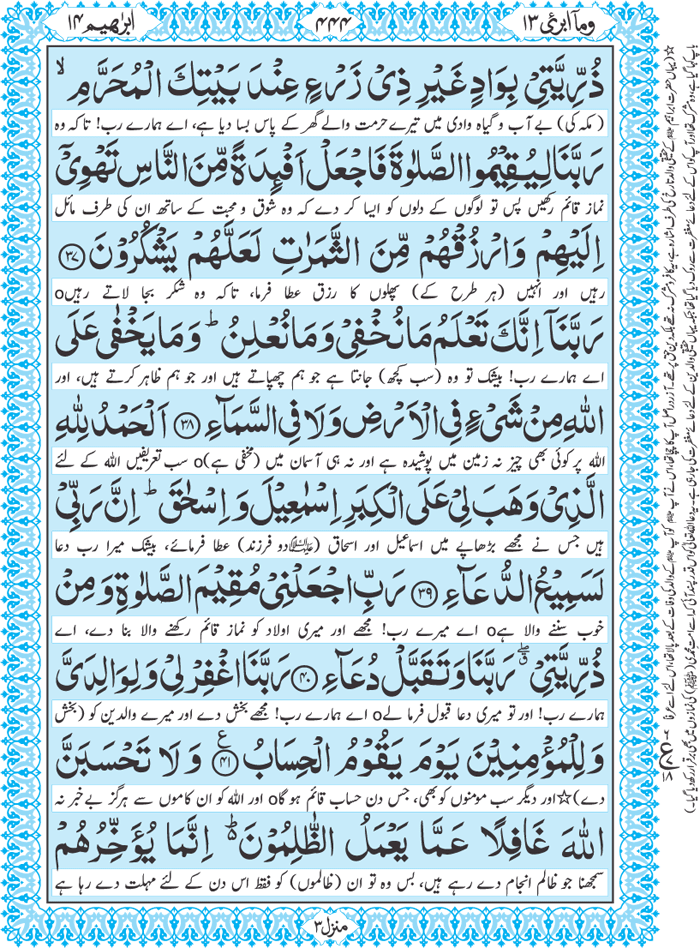 ابرٰھیم ۱۴
۴۴۴
وما ابرئ ۱۳
ذُرِّيَّتِيْ بِوَادٍ غَيْرِ ذِيْ زَرْعٍ عِنْدَ بَيْتِكَ الْمُحَرَّمِ ۙ
(مکہ کی) بے آب و گیاہ وادی میں تیرے حرمت والے گھر کے پاس بسا دیا ہے، اے ہمارے رب! تاکہ وہ
رَبَّنَا لِيُقِيْمُوا الصَّلٰوةَ فَاجْعَلْ اَفْئِدَةً مِّنَ النَّاسِ تَهْوِيْٓ
نماز قائم رکھیں پس تو لوگوں کے دلوں کو ایسا کر دے کہ وہ شوق و محبت کے ساتھ ان کی طرف مائل
اِلَيْهِمْ وَارْزُقْهُمْ مِّنَ الثَّمَرٰتِ لَعَلَّهُمْ يَشْكُرُوْنَ ۳۷
رہیں اور انہیں (ہر طرح کے) پھلوں کا رزق عطا فرما، تاکہ وہ شکر بجا لاتے رہیںo
رَبَّنَآ اِنَّكَ تَعْلَمُ مَا نُخْفِيْ وَمَا نُعْلِنُ ؕ وَمَا يَخْفٰى عَلَى
اے ہمارے رب! بیشک تو وہ (سب کچھ) جانتا ہے جو ہم چھپاتے ہیں اور جو ہم ظاہر کرتے ہیں، اور
اللّٰهِ مِنْ شَيْءٍ فِي الْاَرْضِ وَلَا فِي السَّمَآءِ ۳۸ اَلْحَمْدُ لِلّٰهِ
اللہ پر کوئی بھی چیز نہ زمین میں پوشیدہ ہے اور نہ ہی آسمان میں (مخفی ہے)o سب تعریفیں اللہ کے لئے
الَّذِيْ وَهَبَ لِيْ عَلَى الْكِبَرِ اِسْمٰعِيْلَ وَاِسْحٰقَ ؕ اِنَّ رَبِّيْ
ہیں جس نے مجھے بڑھاپے میں اسماعیل اور اسحاق (علیہما السلام دو فرزند) عطا فرمائے، بیشک میرا رب دعا
لَسَمِيْعُ الدُّعَآءِ ۳۹ رَبِّ اجْعَلْنِيْ مُقِيْمَ الصَّلٰوةِ وَمِنْ
خوب سننے والا ہےo اے میرے رب! مجھے اور میری اولاد کو نماز قائم رکھنے والا بنا دے، اے
ذُرِّيَّتِيْ ۖۗ رَبَّنَا وَتَقَبَّلْ دُعَآءِ ۴۰ رَبَّنَا اغْفِرْ لِيْ وَلِوَالِدَيَّ
ہمارے رب! اور تو میری دعا قبول فرما لےo اے ہمارے رب! مجھے بخش دے اور میرے والدین کو (بخش
وَلِلْمُؤْمِنِيْنَ يَوْمَ يَقُوْمُ الْحِسَابُ ۴۱ ع وَلَا تَحْسَبَنَّ
دے)☆ اور دیگر سب مومنوں کو بھی، جس دن حساب قائم ہو گاo اور اللہ کو ان کاموں سے ہرگز بے خبر نہ
اللّٰهَ غَافِلًا عَمَّا يَعْمَلُ الظّٰلِمُوْنَ ؕ اِنَّمَا يُؤَخِّرُهُمْ
سمجھنا جو ظالم انجام دے رہے ہیں، بس وہ تو ان (ظالموں) کو فقط اس دن کے لئے مہلت دے رہا ہے
منزل ۳